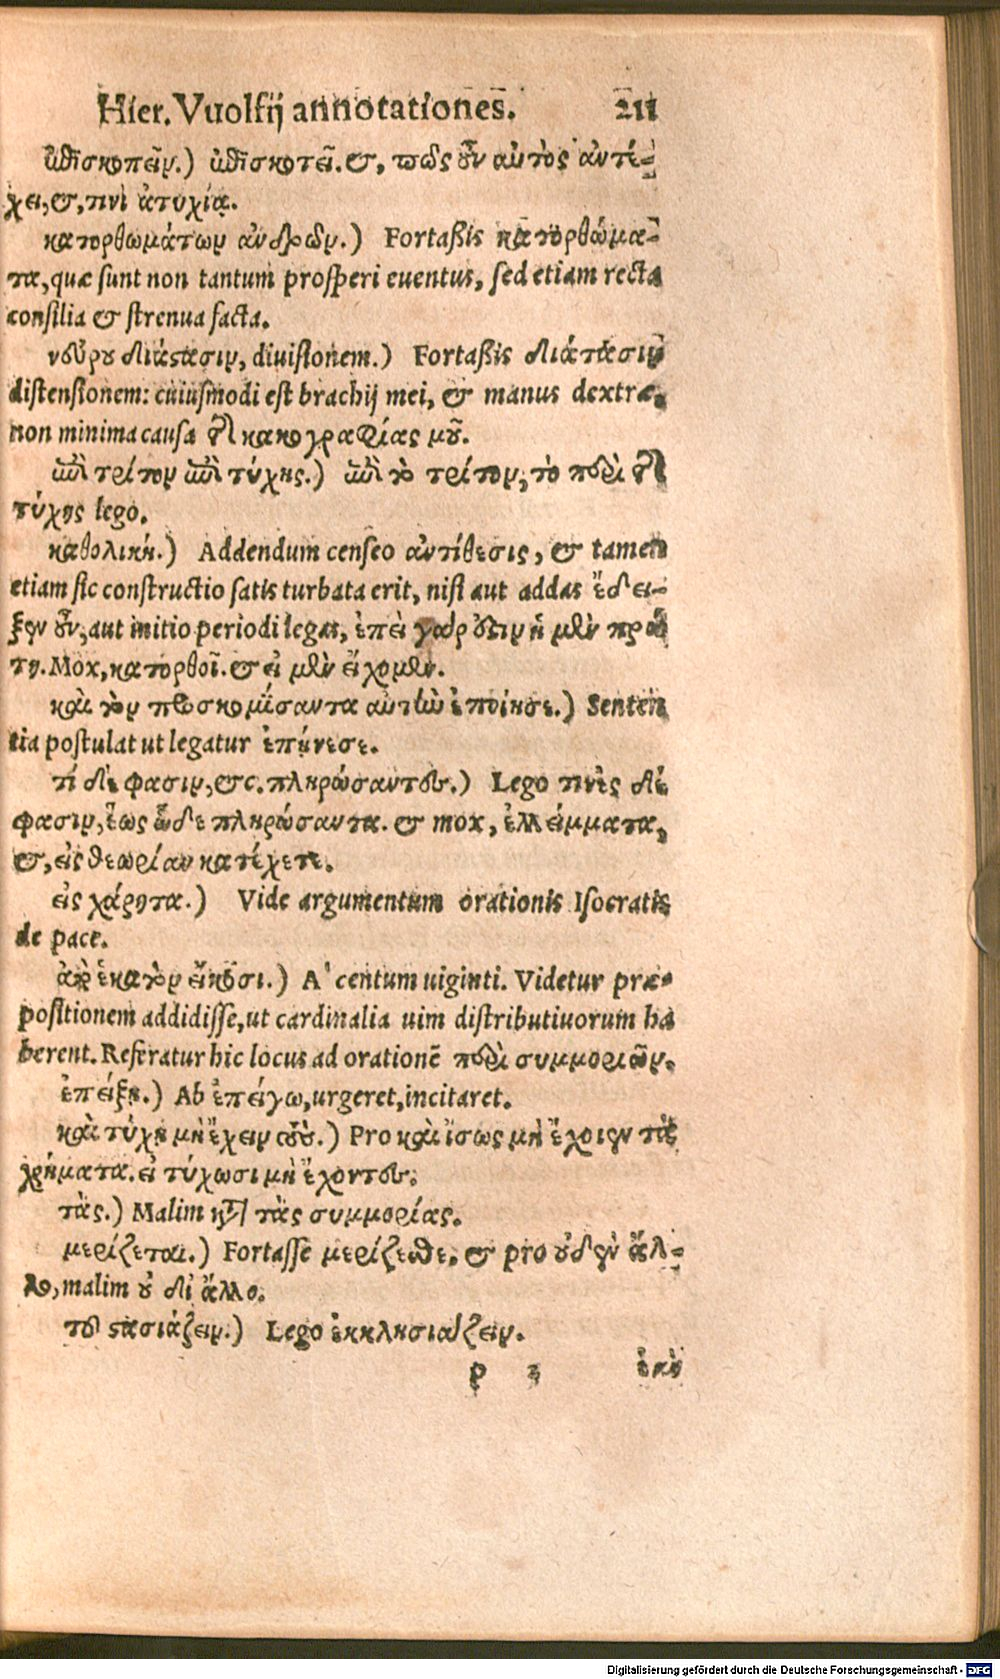 Hier. Vuolfij annotationes. 211
ἐπισκοπεῖν.) ἐπισκοτεῖ. &, πῶς οὖν αὐτὸς ἀντέ-
χει, &, τινὶ ἀτυχίᾳ.
κατορθωμάτων ἀνδρῶν.) Fortaßis κατορθώμα-
τα, quæ sunt non tantum prosperi euentus, sed etiam recta
consilia & strenua facta.
νεύρου διάστασιν, diuisionem.) Fortaßis διάτασιν
distensionem: cuiusmodi est brachij mei, & manus dextræ,
non minima causa τῆς κακογραφίας μοῦ.
ἐπὶ τρίτον ἐπὶ τύχης.) ἐπὶ τὸ τρίτον, τὸ περὶ τῆς
τύχης lego.
καθολική.) Addendum censeo ἀντίθεσις, & tamen
etiam sic constructio satis turbata erit, nisi aut addas ἔδει-
ξεν οὖν, aut initio periodi legas, ἐπεὶ γὰρ ὅτιν ἡ μὲν πρώ
τη. Mox, κατορθοῖ. & εἰ μὲν εἴχομεν.
καὶ τὸν προσκομίσαντα αὐτὼ ἐποίησε.) Senten
tia postulat ut legatur ἐπῄνεσε.
τί δέ φασιν, &c. πληρώσαντες.) Lego τινὲς δέ
φασιν, ἕως ὧδε πληρώσαντα. & mox, ἐλλείμματα,
&, εἰς θεωρίαν κατέχετε.
εἰς χάρητα.) Vide argumentum orationis Isocratis
de pace.
ἀπὸ ἑκατὸν εἴκοσι.) A' centum uiginti. Videtur præ-
positionem addidisse, ut cardinalia uim distributiuorum ha
berent. Referatur hic locus ad orationē περὶ συμμοριῶν.
ἐπείξῃ.) Ab ἐπείγω, urgeret, incitaret.
καὶ τύχῃ μὴ ἔχειν οὐ.) Pro καὶ ἴσως μὴ ἔχοιεν τὰ
χρήματα. εἰ τύχωσι μὴ ἔχοντες.
τὰς.) Malim κατὰ τὰς συμμορίας.
μερίζεται.) Fortasse μερίζεσθε. & pro οὐδὲν ἄλ-
λο, malim οὐ δι' ἄλλο.
τοῦ στασιάζειν.) Lego ἐκκλησιάζειν.
p 3 ἐὰν
Digitalisierung gefördert durch die Deutsche Forschungsgemeinschaft - DFG